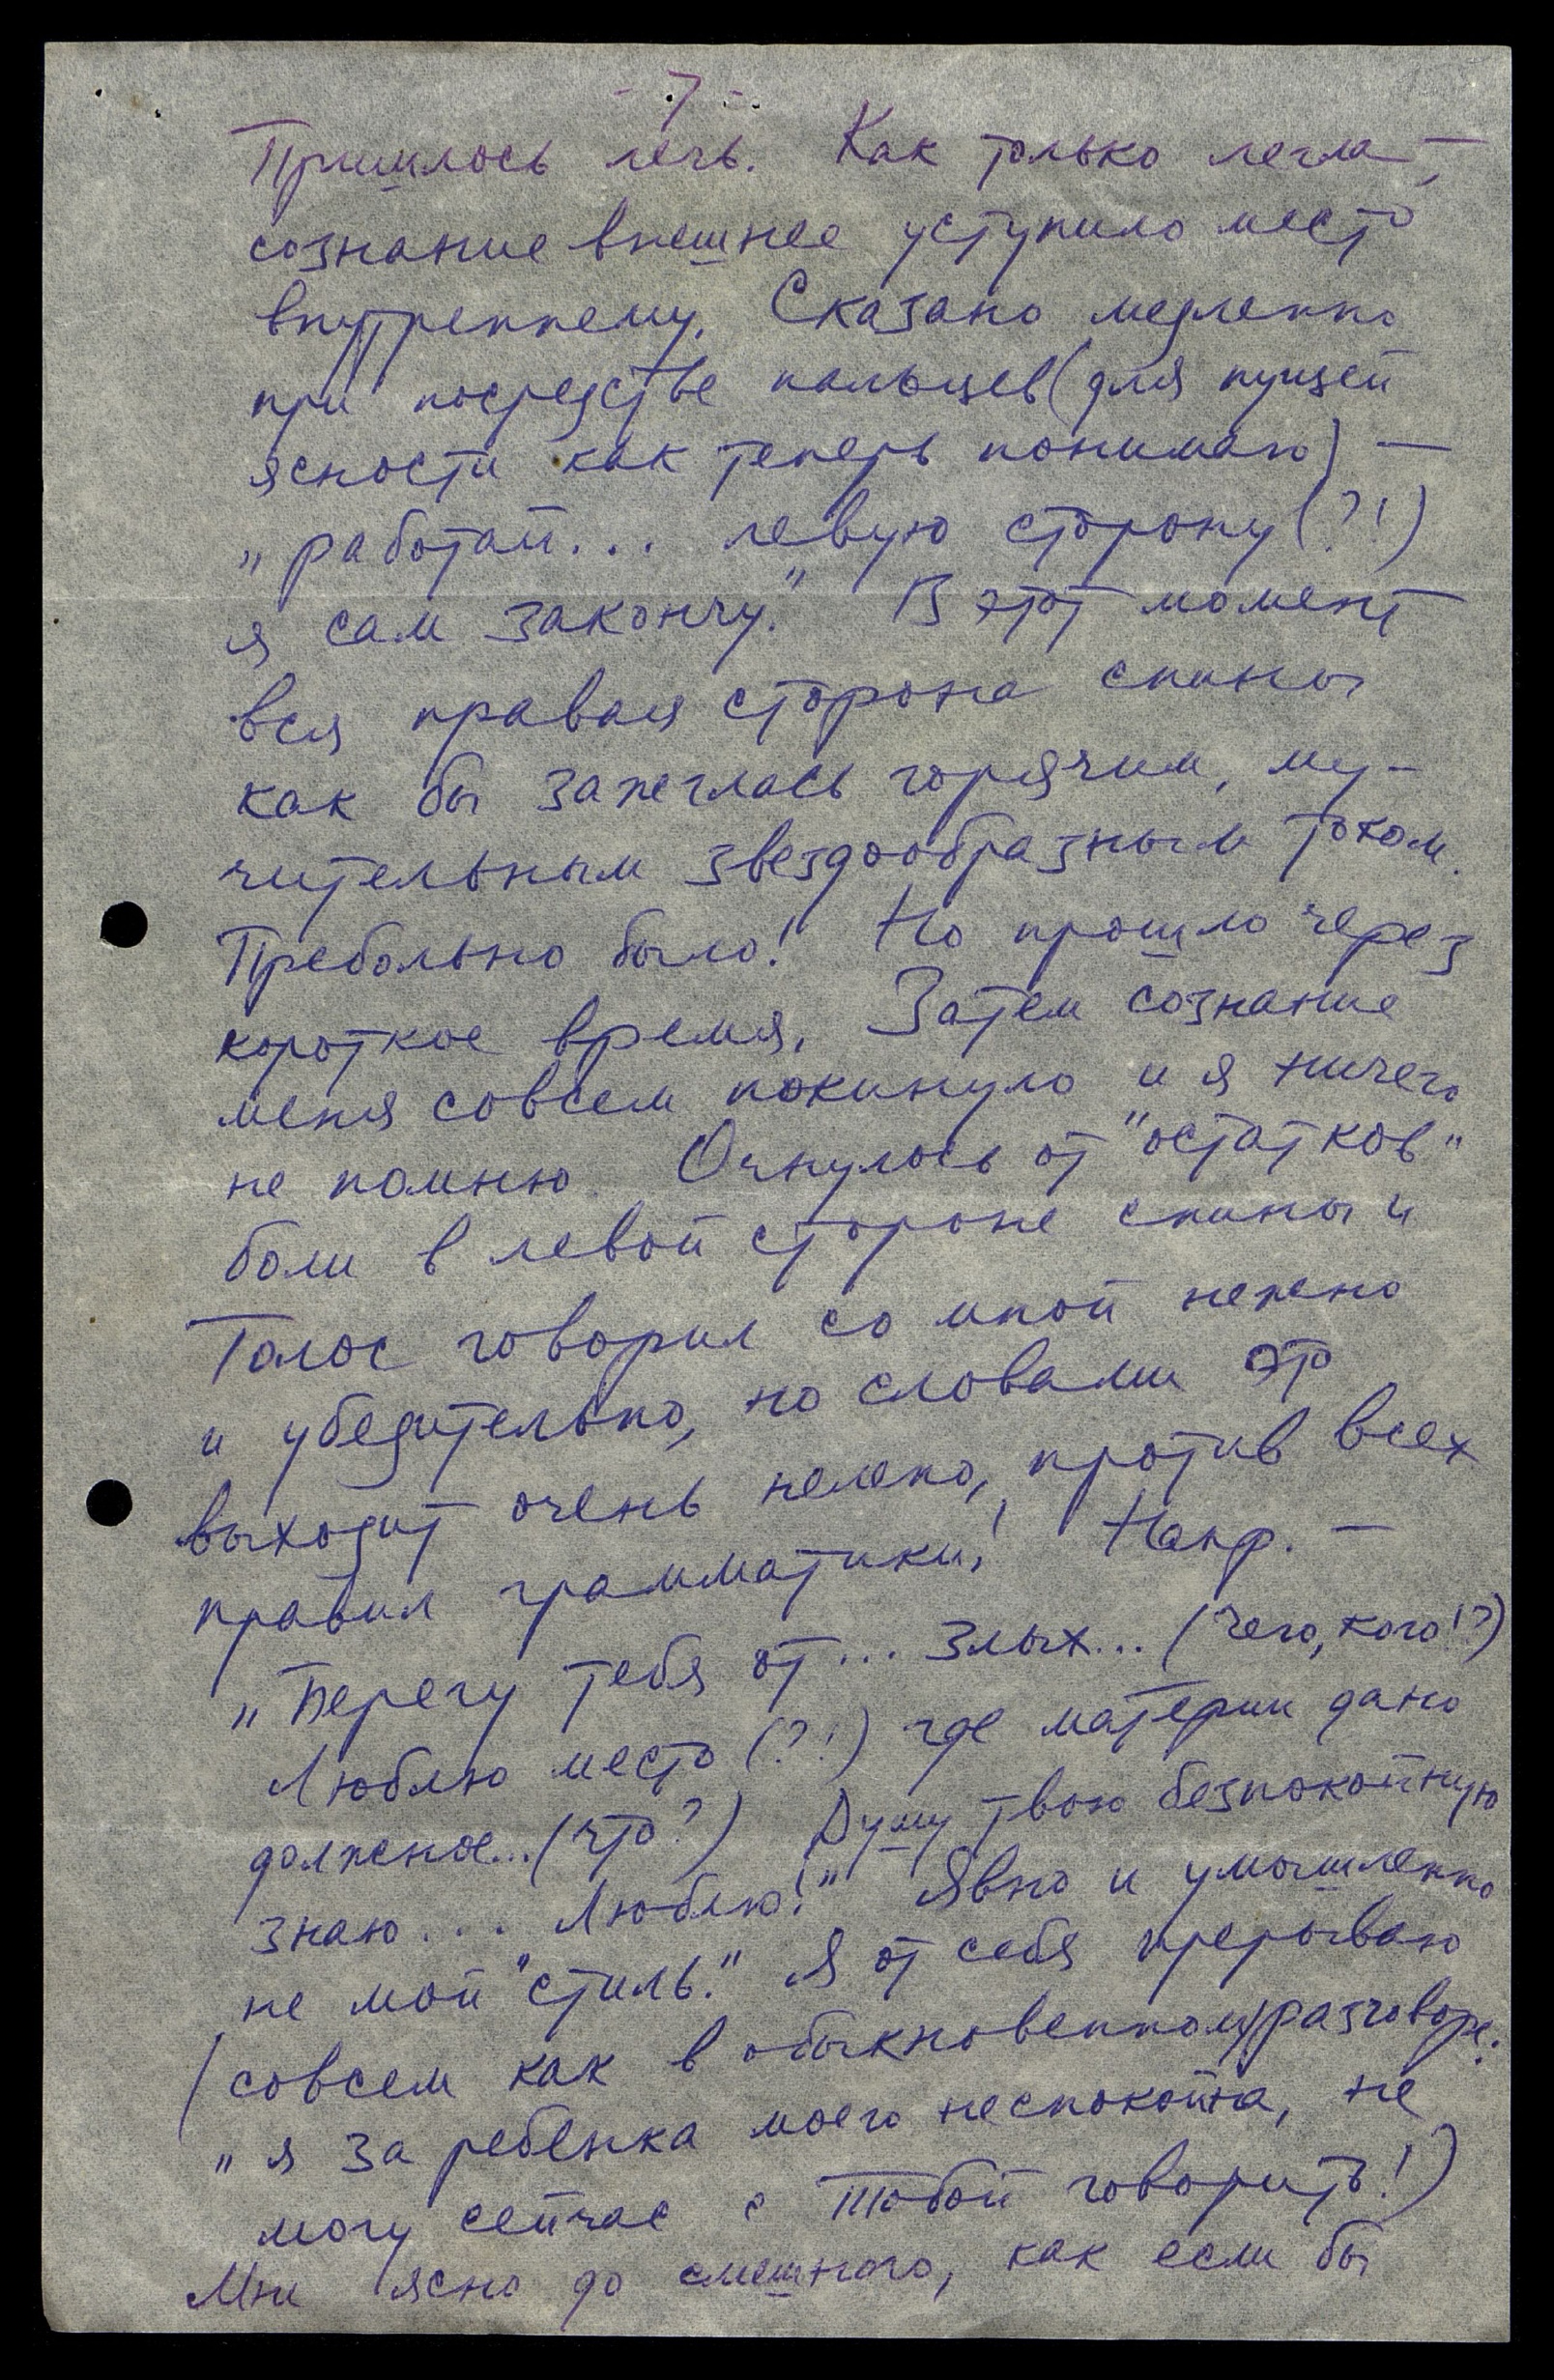 - 7 -
Пришлось лечь. Как только легла —,
сознание внешнее уступило место
внутреннему. Сказано медленно
при посредстве пальцев (для пущей
ясности как теперь понимаю) —
„работай... левую сторону (?!)
я сам закончу." В этот момент
вся правая сторона спины
как бы зажглась горячим, му-
чительным звездообразным током.
Пребольно было! Но прошло через
короткое время. Затем сознание
меня совсем покинуло и я ничего
не помню. Очнулась от "остатков"
боли в левой стороне спины и
Голос говорил со мной нежно
и убедительно, но словами это
выходит очень нелепо, против всех
правил грамматики! Напр. —
„Берегу тебя от... злых... (чего, кого!?)
Люблю место (?!) где материи дано
должное... (что?) Душу твою безпокойную
знаю... Люблю!" Явно и умышленно
не мой "стиль." Я от себя прерываю
(совсем как в обыкновенном разговоре:
„я за ребенка моего неспокойна, не
могу сейчас с Тобой говорить!)
Мне ясно до смешного, как если бы